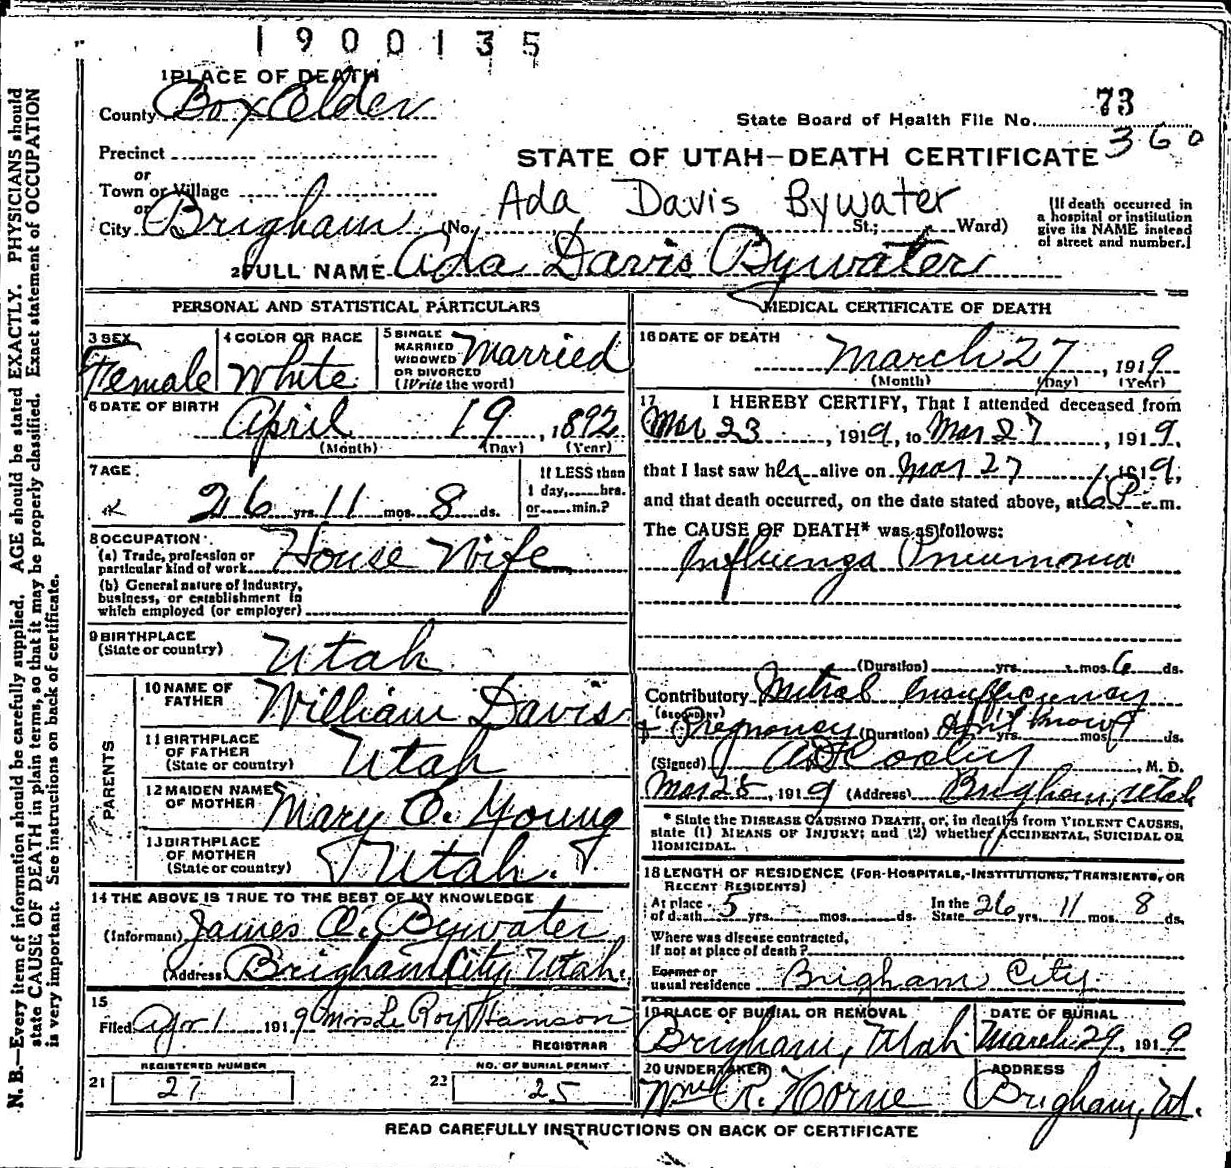 1900135
1 PLACE OF DEATH
County Box Elder
73
State Board of Health File No.
360
Precinct
or
Town or Village
or
City Brigham (No. St.; Ward)
STATE OF UTAH—DEATH CERTIFICATE
Ada Davis Bywater
(If death occurred in
a hospital or institution
give its NAME instead
of street and number.)
2 FULL NAME Ada Davis Bywater
PERSONAL AND STATISTICAL PARTICULARS
3 SEX
Female
4 COLOR OR RACE
White
5 SINGLE
MARRIED
WIDOWED
OR DIVORCED
(Write the word)
Married
6 DATE OF BIRTH
April 19, 1892
(Month) (Day) (Year)
7 AGE
26 yrs. 11 mos. 8 ds.
If LESS than
1 day,......hrs.
or......min.?
8 OCCUPATION
(a) Trade, profession or
particular kind of work House Wife
(b) General nature of industry,
business, or establishment in
which employed (or employer)
9 BIRTHPLACE
(State or country) Utah
PARENTS
10 NAME OF
FATHER William Davis
11 BIRTHPLACE
OF FATHER
(State or country) Utah
12 MAIDEN NAME
OF MOTHER Mary E. Young
13 BIRTHPLACE
OF MOTHER
(State or country) Utah.
14 THE ABOVE IS TRUE TO THE BEST OF MY KNOWLEDGE
(Informant) James O. Bywater
(Address) Brigham City, Utah.
15
Filed Apr 1 1919 Mrs Le Roy
REGISTRAR
21 REGISTERED NUMBER
27
22 NO. OF BURIAL PERMIT
25
MEDICAL CERTIFICATE OF DEATH
16 DATE OF DEATH
March 27, 1919
(Month) (Day) (Year)
17 I HEREBY CERTIFY, That I attended deceased from
Mar 23, 1919, to Mar 27, 1919,
that I last saw her alive on Mar 27, 1919,
and that death occurred, on the date stated above, at 6 P. m.
The CAUSE OF DEATH* was as follows:
Influenza Pneumonia
(Duration) yrs. mos. 6 ds.
Contributory Mitral Insufficiency
(SECONDARY)
+ Pregnancy (Duration) yrs. mos. ds.
(Signed) M. D.
Mar 28, 1919 (Address) Brigham, Utah
* State the DISEASE CAUSING DEATH, or, in deaths from VIOLENT CAUSES,
state (1) MEANS OF INJURY; and (2) whether ACCIDENTAL, SUICIDAL OR
HOMICIDAL.
18 LENGTH OF RESIDENCE (FOR HOSPITALS, INSTITUTIONS, TRANSIENTS, OR
RECENT RESIDENTS)
At place
of death 5 yrs. mos. ds. In the
State 26 yrs. 11 mos. 8 ds.
Where was disease contracted,
if not at place of death?
Former or
usual residence Brigham City
19 PLACE OF BURIAL OR REMOVAL
Brigham, Utah
DATE OF BURIAL
March 29, 1919
20 UNDERTAKER
Wm R. Horne
ADDRESS
Brigham, Ut.
READ CAREFULLY INSTRUCTIONS ON BACK OF CERTIFICATE
N. B.—Every item of information should be carefully supplied. AGE should be stated EXACTLY. PHYSICIANS should
state CAUSE OF DEATH in plain terms, so that it may be properly classified. Exact statement of OCCUPATION
is very important. See instructions on back of certificate.